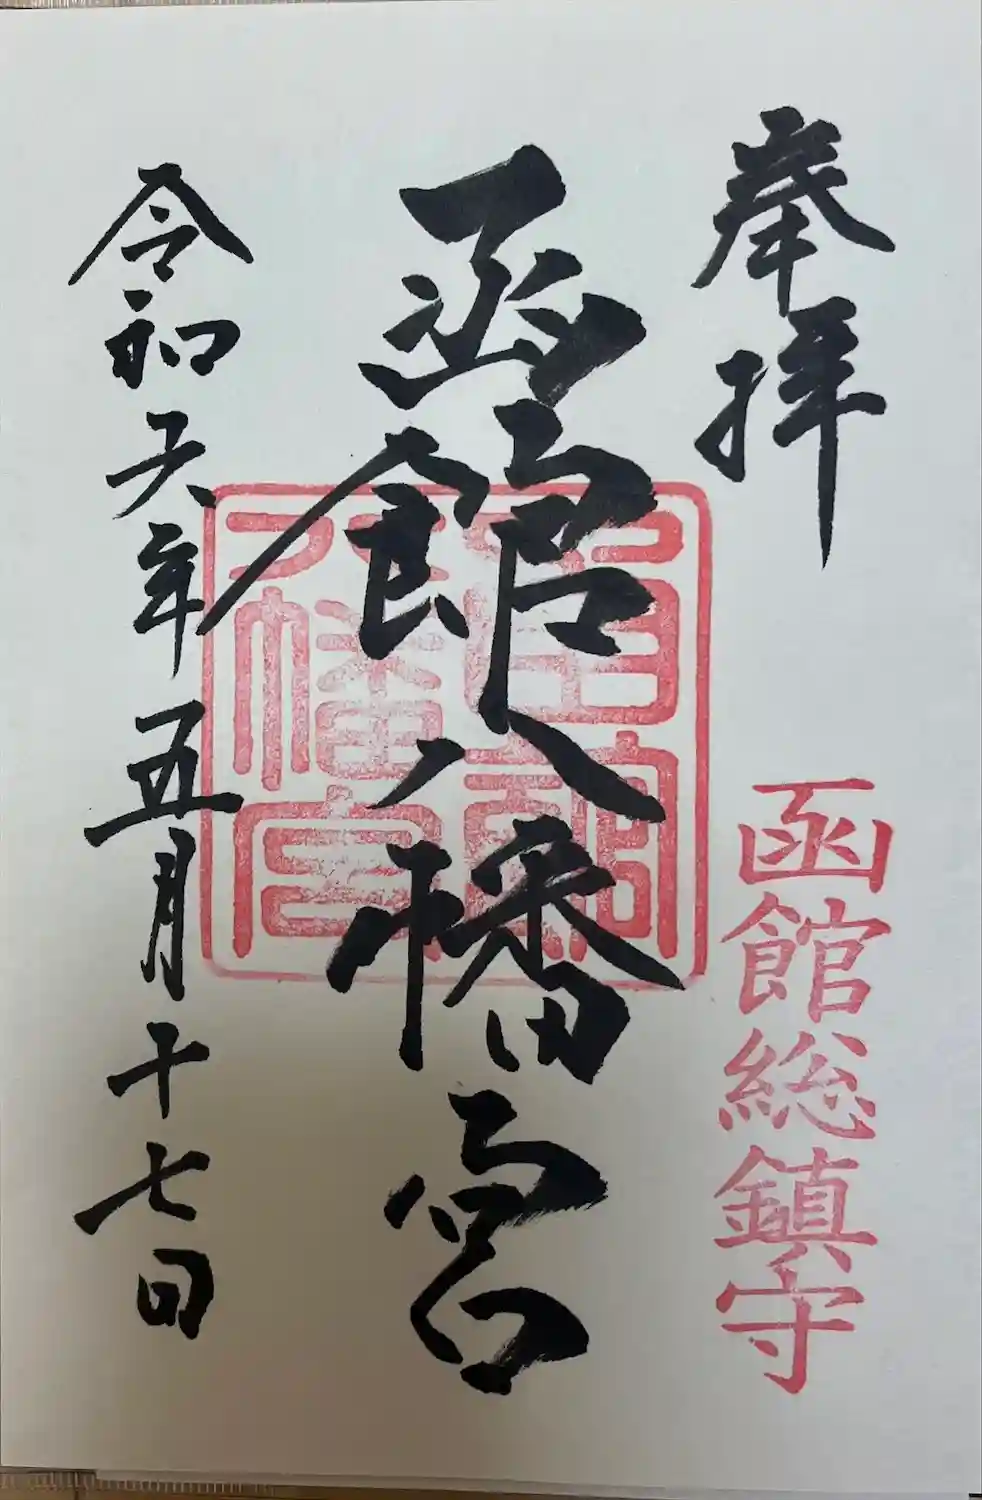 奉拝
函館総鎮守
函館八幡宮
令和六年五月十七日